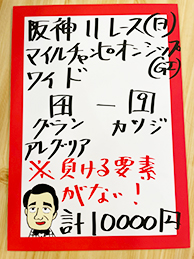 阪神11レース(日)
マイルチャンピオンシップ
(GI)
ワイド
④ー⑨
グラン カツジ
アレグリア
※負ける要素
がない!
計10000円